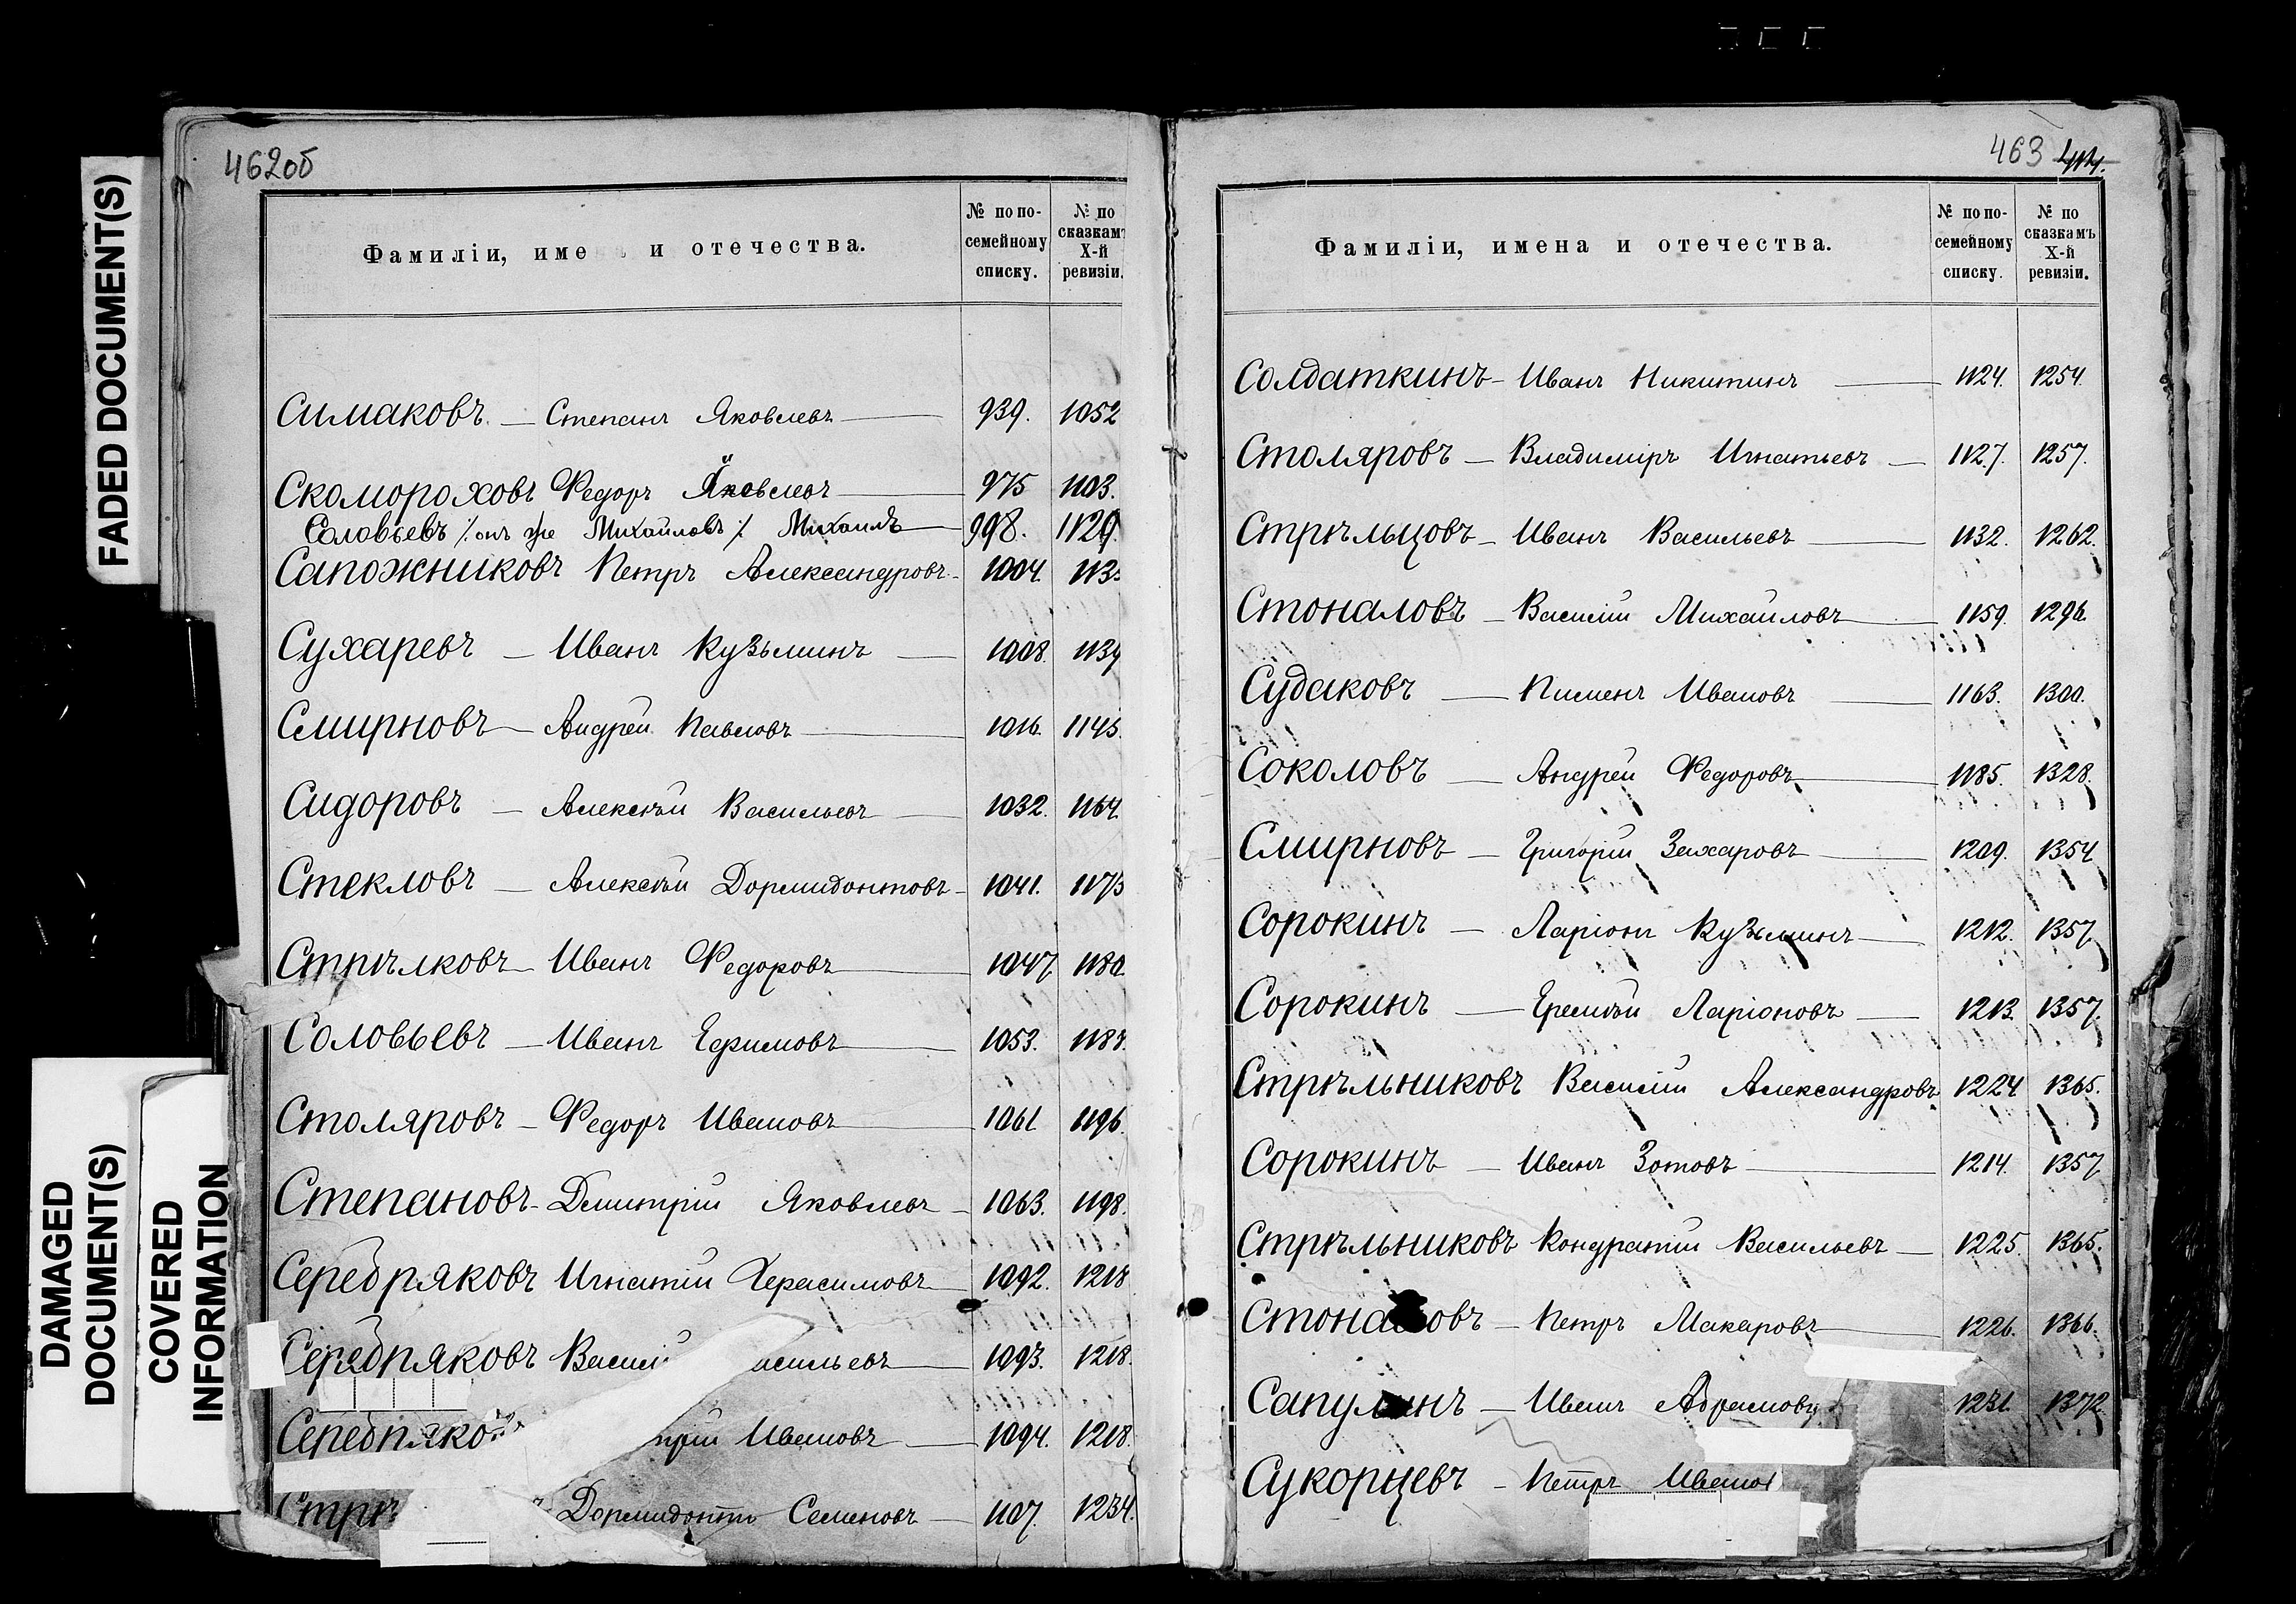 FADED DOCUMENT(S)
DAMAGED DOCUMENT(S)
COVERED INFORMATION
462об
Фамиліи, имена и отечества. № по по-семейному списку. № по сказкамъ X-й ревизіи.
Симаковъ. — Степанъ Яковлевъ — 939. 1052
Скомороховъ Федоръ Яковлевъ — 975 1103.
Соловьевъ /: онъ же Михайловъ :/ Михаилъ — 998. 1129.
Сапожниковъ Петръ Александровъ — 1004. 113
Сухаревъ — Иванъ Кузьминъ — 1008. 1139
Смирновъ — Андрей Павловъ — 1016. 1145.
Сидоровъ — Алексѣй Васильевъ — 1032. 1164.
Стекловъ — Алексѣй Дормидонтовъ — 1041. 1173
Стрѣлковъ — Иванъ Федоровъ — 1047 1180.
Соловьевъ — Иванъ Ефимовъ — 1053. 1183.
Столяровъ — Федоръ Ивановъ — 1061 1196.
Степановъ — Дмитрій Яковлевъ — 1063. 1198.
Серебряковъ Игнатій Герасимовъ — 1092. 1218
Серебряковъ Васил асильевъ — 1093. 1218.
Серебряко трій Ивановъ — 1094. 1218.
Стрѣ Дормидонтъ Семеновъ — 1107. 1234.
463
Фамиліи, имена и отечества. № по по-семейному списку. № по сказкамъ X-й ревизіи.
Солдаткинъ — Иванъ Никитинъ — 1124. 1254.
Столяровъ — Владиміръ Игнатьевъ — 1127. 1257.
Стрѣльцовъ — Иванъ Васильевъ — 1132. 1262.
Стоналовъ — Василій Михайловъ — 1159. 1296.
Судаковъ — Пименъ Ивановъ — 1163. 1300.
Соколовъ — Андрей Федоровъ — 1185. 1328.
Смирновъ — Григорій Захаровъ — 1209. 1354
Сорокинъ — Ларіонъ Кузьминъ — 1212. 1357
Сорокинъ — Еремѣй Ларіоновъ — 1213. 1357.
Стрѣльниковъ Василій Александровъ 1224 1365.
Сорокинъ — Иванъ Зотовъ — 1214. 1357
Стрѣльниковъ Кондратій Васильевъ — 1225. 1365.
Стона овъ — Петръ Макаровъ — 1226. 1366.
Сапулинъ — Иванъ Абрамовъ 1231. 1372.
Сукорцевъ — Петръ Ивано